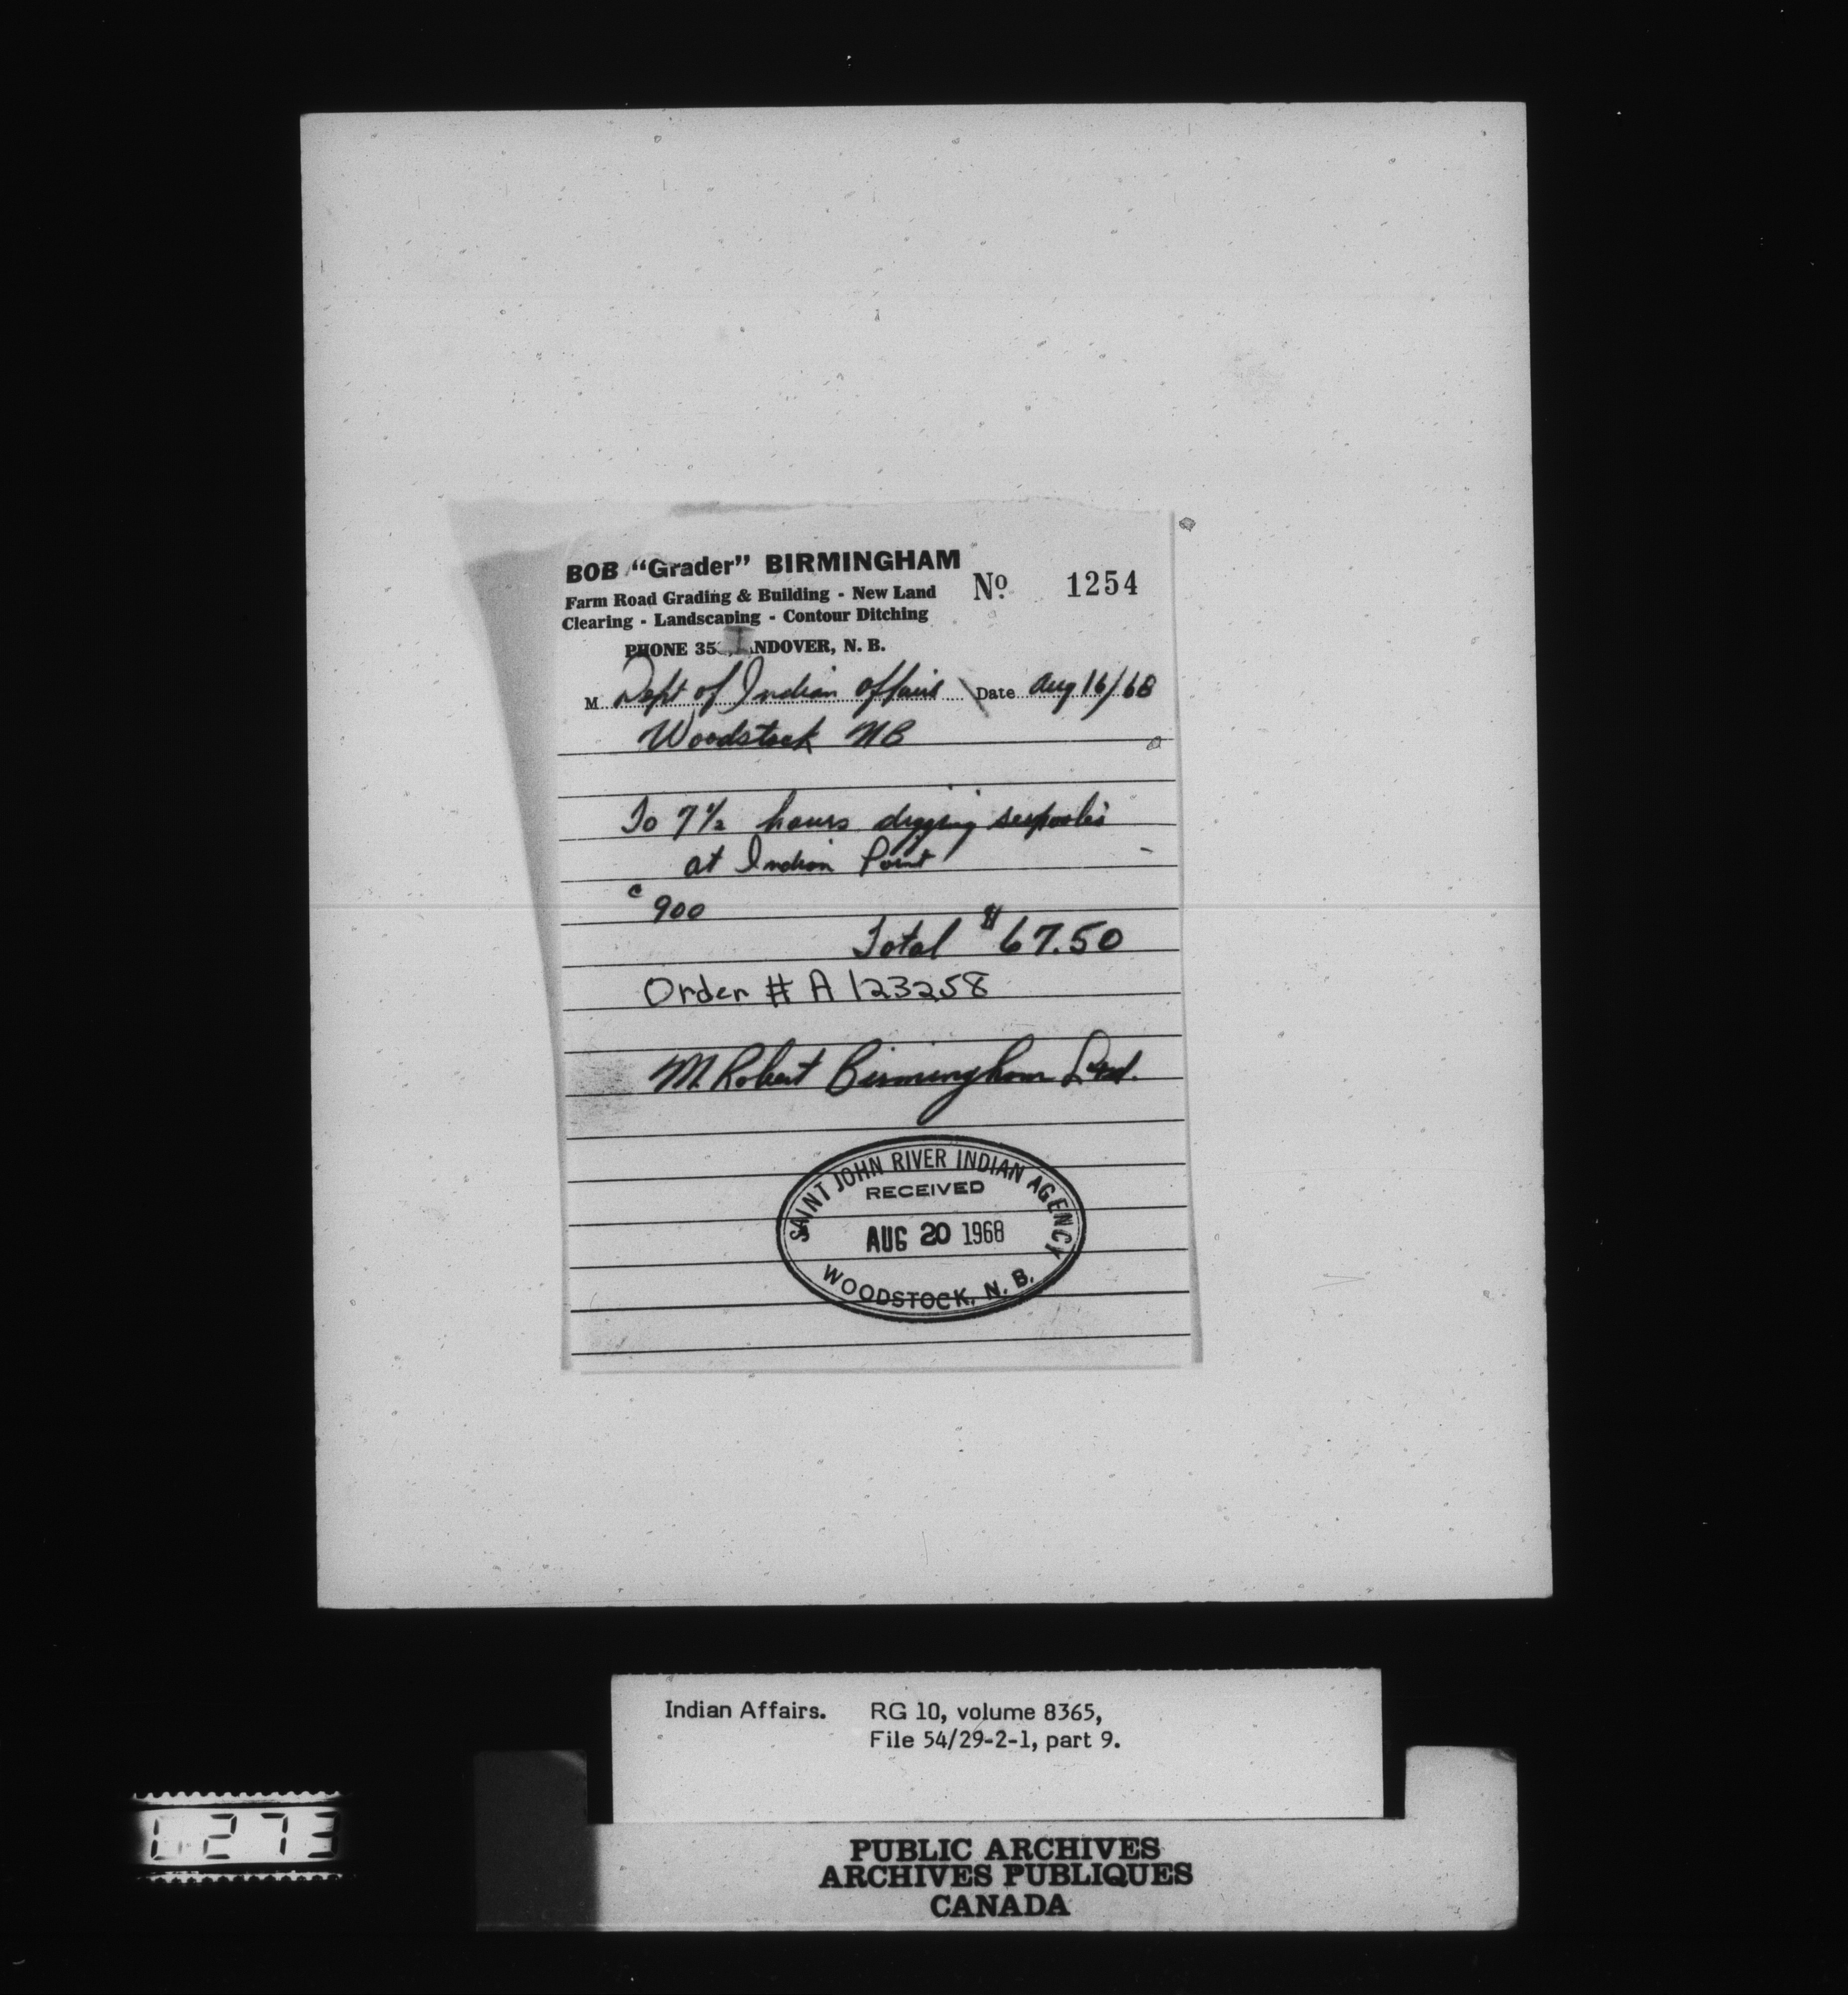 BOB "Grader" BIRMINGHAM
Farm Road Grading & Building - New Land
Clearing - Landscaping - Contour Ditching
PHONE 35 NDOVER, N. B.
No. 1254
M Dept of Indian Affairs Date Aug 16/68
Woodstock NB
To 7 1/2 hours digging sespools
at Indian Point
c 900
Total $67.50
Order # A 123258
M. Robert Birmingham Ltd.
SAINT JOHN RIVER INDIAN AGENCY
RECEIVED
AUG 20 1968
WOODSTOCK, N. B.
Indian Affairs. RG 10, volume 8365,
File 54/29-2-1, part 9.
273
PUBLIC ARCHIVES
ARCHIVES PUBLIQUES
CANADA